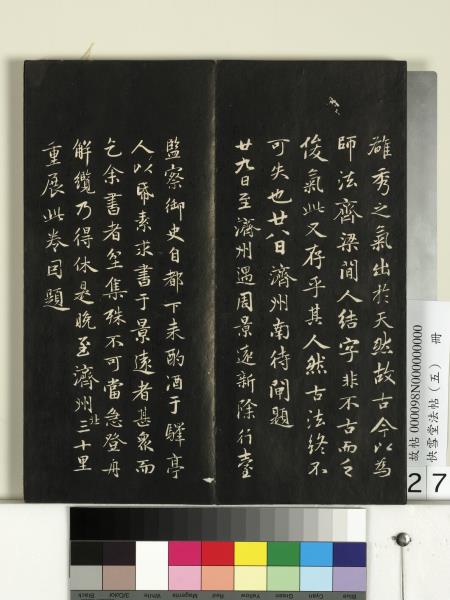 雄秀之氣出於天然故古今以為
師法齊梁間人結字非不古而乏
俊氣此又存乎其人然古法終不
可失也廿八日濟州南待閘題
廿九日至濟州遇周景遠新除行臺
監察御史自都下来酌酒于驛亭
人以帋素求書于景遠者甚衆而
乞余書者坌集殊不可當急登舟
解纜乃得休是晚至濟州北三十里
重展此卷因題
故帖000098N000000000
快雪堂法帖（五） 冊
27
Black
3/Color
White
Magenta
Red
Yellow
Green
Cyan
Blue